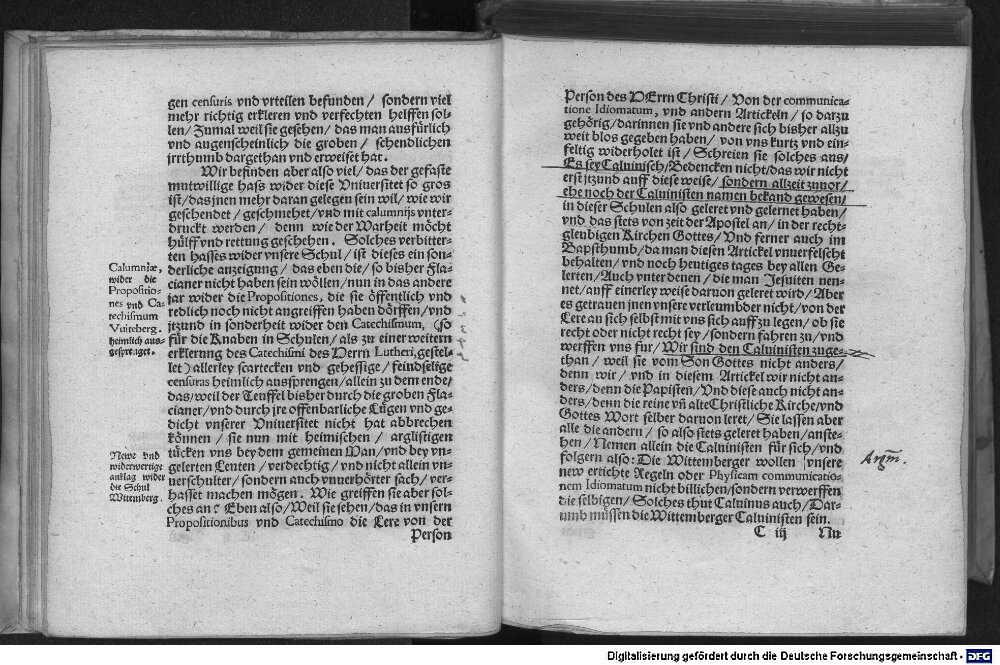 gen censuris vnd vrteilen befunden / sondern viel
mehr richtig erkleren vnd verfechten helffen sol-
len / Zumal weil sie gesehen / das man ausfürlich
vnd augenscheinlich die groben / schendlichen
jrrthumb dargethan vnd erweiset hat.
Wir befinden aber also viel / das der gefaste
mutwillige hass wider diese Vniuersitet so gros
ist / das jnen mehr daran gelegen sein wil / wie wir
geschendet / geschmehet / vnd mit calumnijs vnter-
druckt werden / denn wie der Warheit möcht
hülff vnd rettung geschehen. Solches verbitter-
ten hasses wider vnsere Schul / ist dieses ein son-
derliche anzeigung / das eben die / so bisher Fla-
cianer nicht haben sein wöllen / nun in das andere
jar wider die Propositiones, die sie öffentlich vnd
redlich noch nicht angreiffen haben dörffen / vnd
jtzund in sonderheit wider den Catechismum, (so
für die Knaben in Schulen / als zu einer weitern
erklerung des Catechismi des Herrn Lutheri, gestel-
let) allerley scartecken vnd gehessige / feindselige
censuras heimlich aussprengen / allein zu dem ende /
das / weil der Teuffel bisher durch die groben Fla-
cianer / vnd durch jre offenbarliche Lügen vnd ge-
dicht vnserer Vniuersitet nicht hat abbrechen
können / sie nun mit heimischen / arglistigen
tücken vns bey dem gemeinen Man / vnd bey vn-
gelerten Leuten / verdechtig / vnd nicht allein vn-
uerschulter / sondern auch vnuerhörter sach / ver-
hasset machen mögen. Wie greiffen sie aber sol-
ches an? Eben also / Weil sie sehen / das in vnsern
Propositionibus vnd Catechismo die Lere von der
Person
Calumniæ,
wider die
Propositio-
nes vnd Ca-
techismum
Vuiteberg.
heimlich aus-
gesprenget.
Newe vnd
widerwertige
anklag wider
die Schul
Wittemberg.
Person des HErrn Christi / Von der communica-
tione Idiomatum, vnd andern Artickeln / so darzu
gehörig / darinnen sie vnd andere sich bisher allzu
weit blos gegeben haben / von vns kurtz vnd ein-
feltig widerholet ist / Schreien sie solches aus /
Es sey Caluinisch / Bedencken nicht / das wir nicht
erst jtzund auff diese weise / sondern allzeit zuuor /
ehe noch der Caluinisten namen bekand gewesen /
in dieser Schulen also geleret vnd gelernet haben /
vnd das stets von zeit der Apostel an / in der recht-
gleubigen Kirchen Gottes / Vnd ferner auch im
Bapsthumb / da man diesen Artickel vnuerfelscht
behalten / vnd noch heutiges tages bey allen Ge-
lerten / Auch vnter denen / die man Jesuiten nen-
net / auff einerley weise daruon geleret wird / Aber
es getrauen jnen vnsere verleumbder nicht / von der
Lere an sich selbst mit vns sich auff zu legen / ob sie
recht oder nicht recht sey / sondern fahren zu / vnd
werffen vns fur / Wir sind den Caluinisten zuge-
than / weil sie vom Son Gottes nicht anders /
denn wir / vnd in diesem Artickel wir nicht an-
ders / denn die Papisten / Vnd diese auch nicht an-
ders / denn die reine vn̄ alte Christliche Kirche / vnd
Gottes Wort selber daruon leret / Sie lassen aber
alle die andern / so also stets geleret haben / anste-
hen / Nemen allein die Caluinisten für sich / vnd
folgern also: Die Wittemberger wollen vnsere
new ertichte Regeln oder Physicam communicatio-
nem Idiomatum nicht billichen / sondern verwerffen
die selbigen / Solches thut Caluinus auch / Dar-
umb müssen die Wittemberger Caluinisten sein.
C iij Nu
Argm.
Digitalisierung gefördert durch die Deutsche Forschungsgemeinschaft - DFG